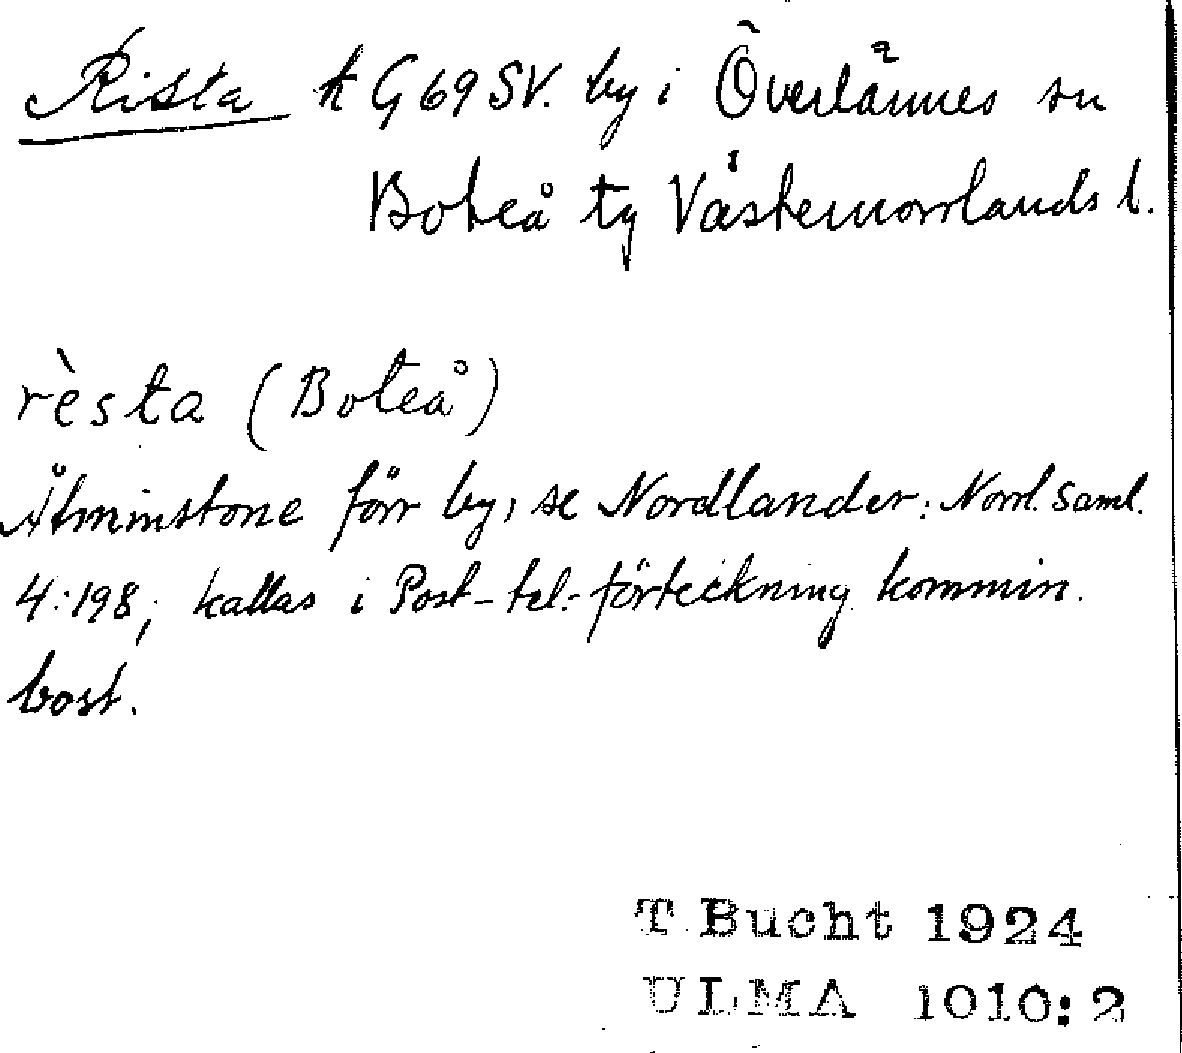 Rista k G69SV. by i Överlännes sn
Boteå tg Västernorrlands l.
rèsta (Boteå)
Åtminstone förr by, se Nordlander: Norrl. Saml.
4:198, kallas i Post-tel.-förteckning kommin.
bost.
T Bucht 1924
ULMA 1010:2